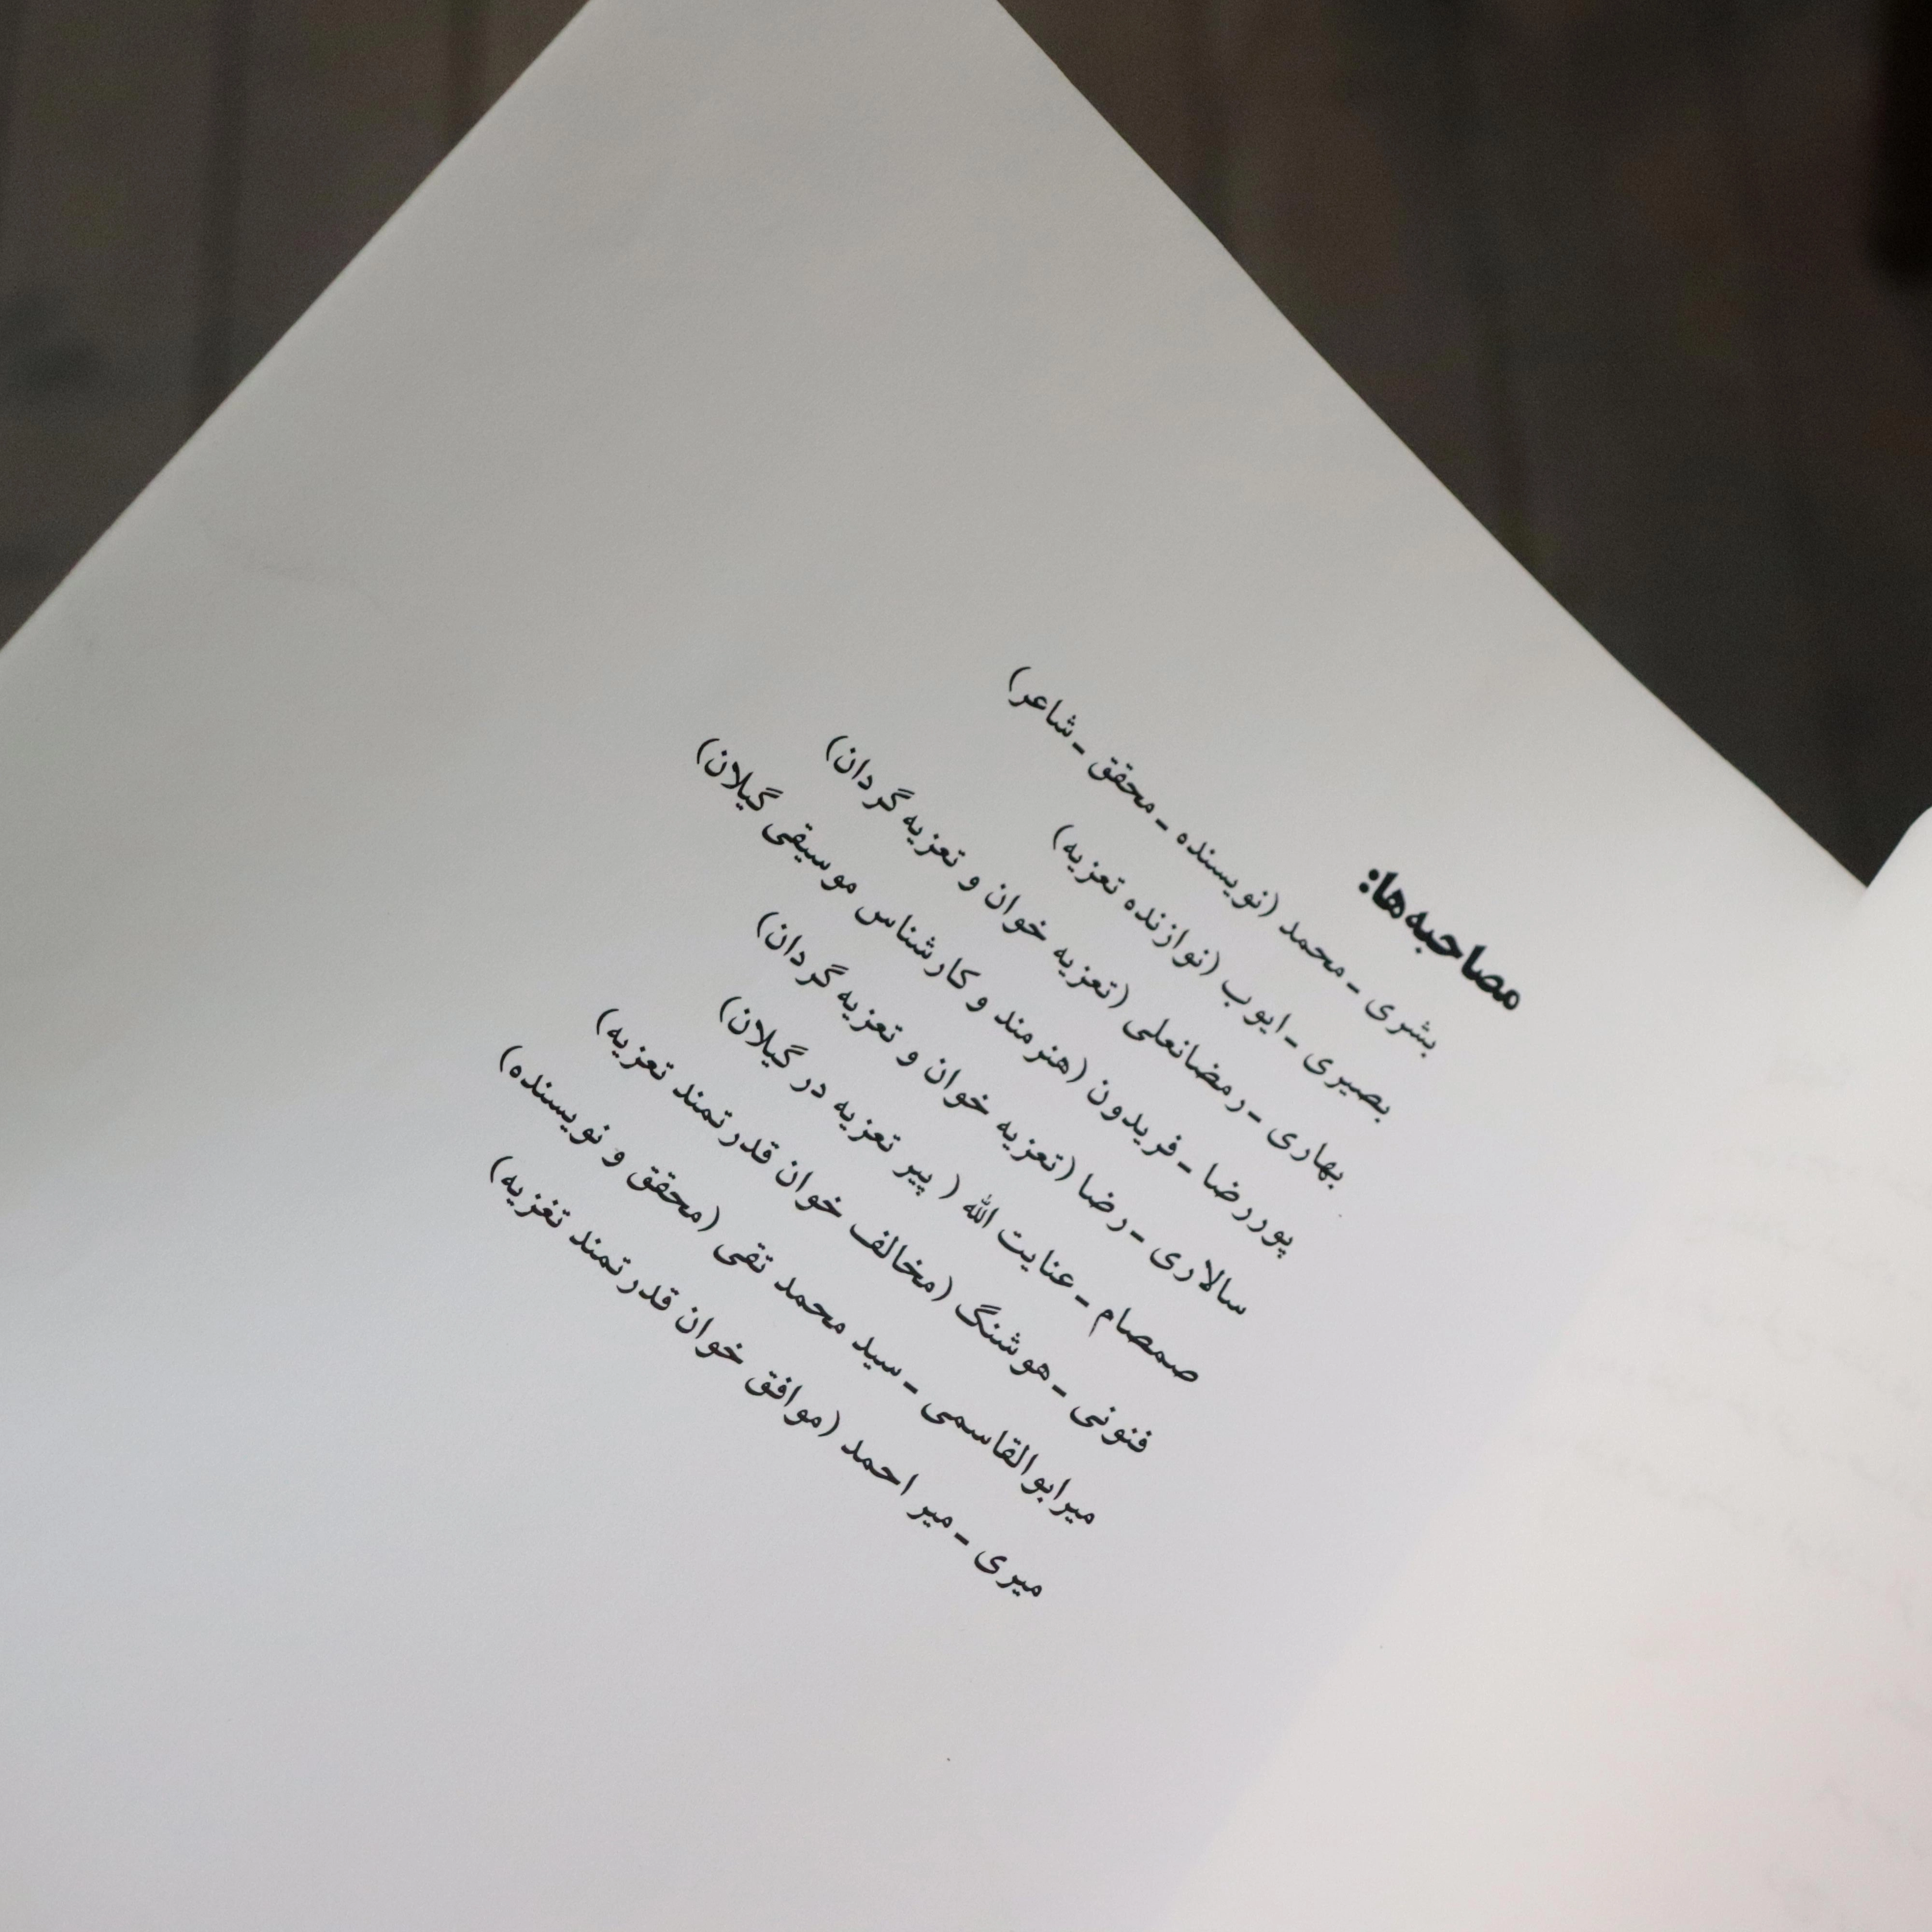 مصاحبه‌ها:
بشری ـ محمد (نویسنده ـ محقق ـ شاعر)
بصیری ـ ایوب (نوازنده تعزیه)
بهاری ـ رمضانعلی (تعزیه خوان و تعزیه گردان)
پوررضا ـ فریدون (هنرمند و کارشناس موسیقی گیلان)
سالاری ـ رضا (تعزیه خوان و تعزیه گردان)
صمصام ـ عنایت الله ( پیر تعزیه در گیلان)
فنونی ـ هوشنگ (مخالف خوان قدرتمند تعزیه)
میرابوالقاسمی ـ سید محمد تقی (محقق و نویسنده)
میری ـ میر احمد (موافق خوان قدرتمند تغزیه)